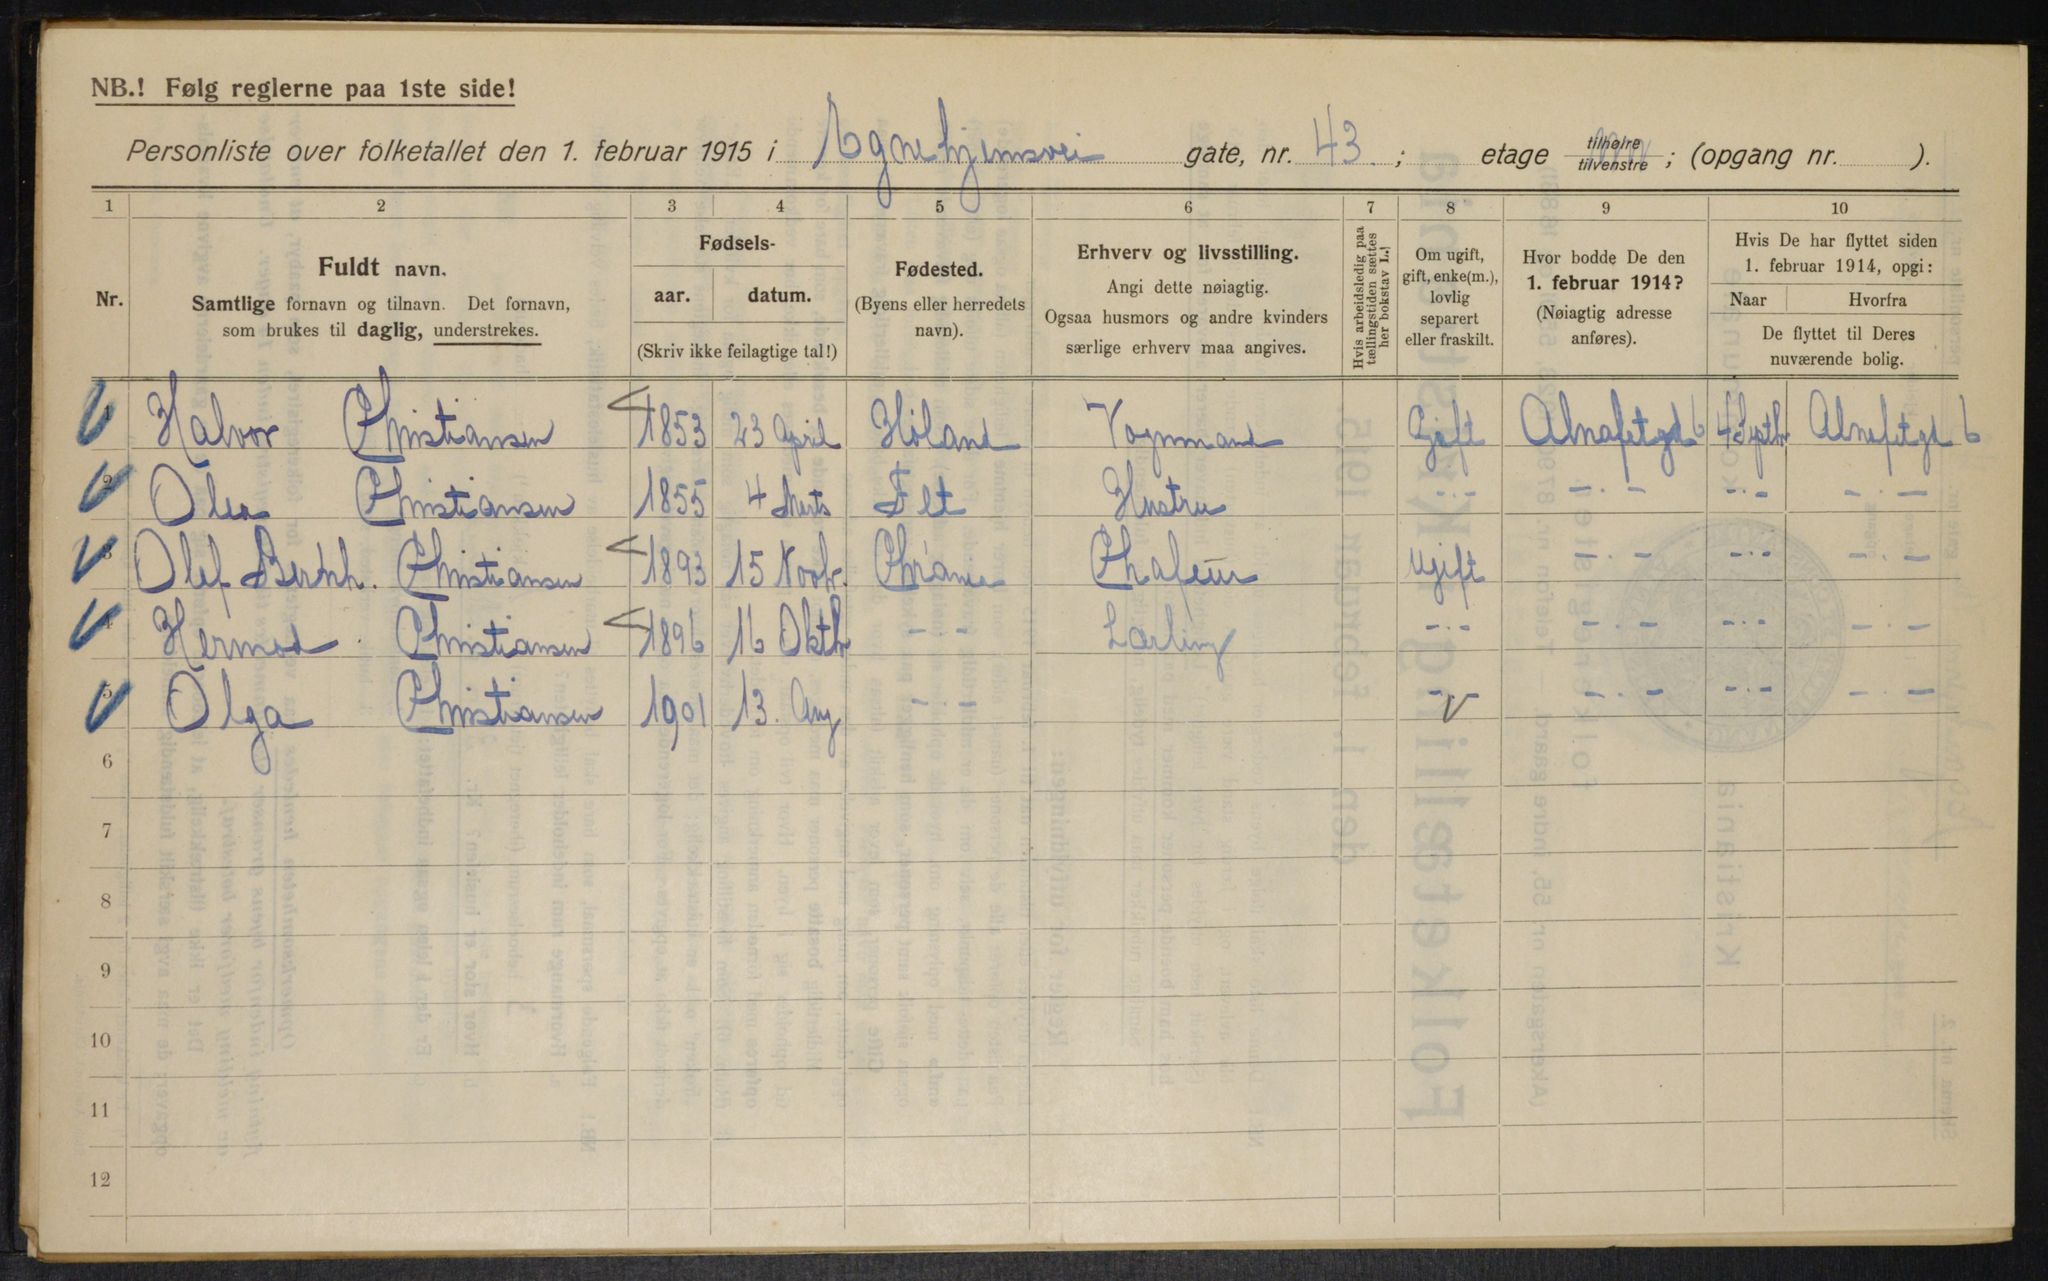 NB.! Følg reglerne paa 1ste side!
Personliste over folketallet den 1. februar 1915 i Egnehjemsvei gate, nr. 43. ; etage tilhøire tilvenstre ; (opgang nr. ).
1 2 3 4 5 6 7 8 9 10
Nr.
Fuldt navn.
Samtlige fornavn og tilnavn. Det fornavn,
som brukes til daglig, understrekes.
Fødsels-
aar. datum.
(Skriv ikke feilagtige tal!)
Fødested.
(Byens eller herredets
navn).
Erhverv og livsstilling.
Angi dette nøiagtig.
Ogsaa husmors og andre kvinders
særlige erhverv maa angives.
Hvis arbeidsledig paa
tællingstiden sættes
her bokstav L.
Om ugift,
gift, enke(m.),
lovlig
separert
eller fraskilt.
Hvor bodde De den
1. februar 1914?
(Nøiagtig adresse
anføres).
Hvis De har flyttet siden
1. februar 1914, opgi:
Naar Hvorfra
De flyttet til Deres
nuværende bolig.
1 Halvor Christiansen 1853 23 April Høland Vognmand Gift Alnafetgd 6 4 Septb. Alnafetgd 6
2 Olea Christiansen 1855 4 Marts Fet Hustru - · - - · - - · - - · -
3 Olef Bernh. Christiansen 1893 15 Novbr. Chr'ania Chafeur Ugift - · - - · - - · -
4 Hermod Christiansen 1896 16 Oktb - - Lærling - · - - · - - · - - · -
5 Olga Christiansen 1901 13. Aug - · - - · - - · - - · - - · -
6
7
8
9
10
11
12